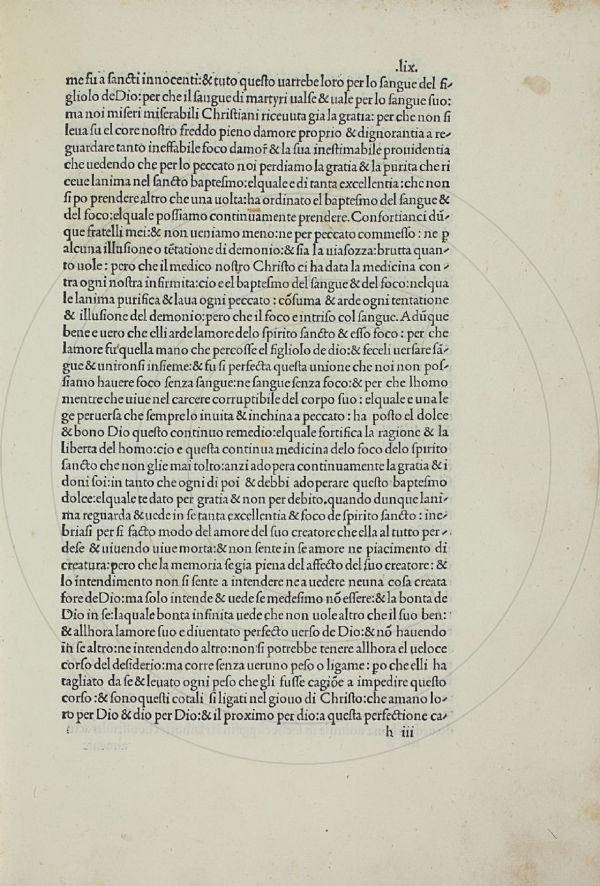 .lix.
me fu a sancti innocenti:& tuto questo uarrebe loro per lo sangue del fi⸗
gliolo deDio: per che il sangue di martyri ualse & uale per lo sangue suo:
ma noi miseri miserabili Christiani riceuuta gia la gratia: per che non si
leua su el core nostro freddo pieno damore proprio & dignorantia a re⸗
guardare tanto ineffabile foco damoř & la sua inestimabile prouidentia
che uedendo che per lo peccato noi perdiamo la gratia & la purita che ri
ceue lanima nel sancto baptesmo: elquale e di tanta excellentia: che non
si po prendere altro che una uolta: ha ordinato el baptesmo del sangue &
del foco: elquale possiamo continuamente prendere. Confortianci dū⸗
que fratelli mei: & non ueniamo meno: ne per peccato commesso: ne p
alcuna illusione o tētatione di demonio: & sia la uiasozza: brutta quan⸗
to uole: pero che il medico nostro Christo ci ha data la medicina con⸗
tra ogni nostra infirmita: cio e el baptesmo del sangue & del foco: nelqua
le lanima purifica & laua ogni peccato: cōsuma & arde ogni tentatione
& illusione del demonio: pero che il foco e intriso col sangue. Adūque
bene e uero che elli arde lamore delo spirito sancto & esso foco: per che
lamore fu quella mano che percosse el figliolo de dio: & feceli uersare sā⸗
gue & unironsi insieme: & fu si perfecta questa unione che noi non pos⸗
siamo hauere foco senza sangue: ne sangue senza foco: & per che lhomo
mentre che uiue nel carcere corruptibile del corpo suo: elquale e una le
ge peruersa che sempre lo inuita & inchina a peccato: ha posto el dolce
& bono Dio questo continuo remedio: elquale fortifica la ragione & la
liberta del homo: cio e questa continua medicina delo foco delo spirito
sancto che non glie mai tolto: anzi adopera continuamente la gratia & i
doni soi: in tanto che ogni di poi & debbi adoperare questo baptesmo
dolce: elquale te dato per gratia & non per debito, quando dunque lani⸗
ma reguarda & uede in se tanta excellentia & foco de spirito sancto: ine⸗
briasi per si facto modo del amore del suo creatore che ella al tutto per⸗
dese & uiuendo uiue morta: & non sente in se amore ne piacimento di
creatura: pero che la memoria se gia piena del affecto del suo creatore: &
lo intendimento non si sente a intendere ne a uedere neuna cosa creata
fore deDio: ma solo intende & uede se medesimo nō essere: & la bonta de
Dio in se: laquale bonta infinita uede che non uole altro che il suo ben:
& allhora lamore suo e diuentato perfecto uerso de Dio: & nō hauendo
in se altro: ne intendendo altro: non si potrebbe tenere allhora el ueloce
corso del desiderio: ma corre senza ueruno peso o ligame: po che elli ha
tagliato da se & leuato ogni peso che gli fusse cagiōe a impedire questo
corso: & sono questi cotali si ligati nel giouo di Christo: che amano lo⸗
ro per Dio & dio per Dio: & il proximo per dio: a questa perfectione ca⸗
h iii